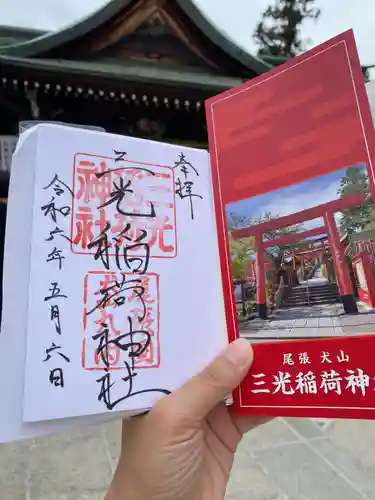 奉拝
三光稲荷神社
三光稲荷神社
令和六年五月六日
尾張 犬山
三光稲荷神